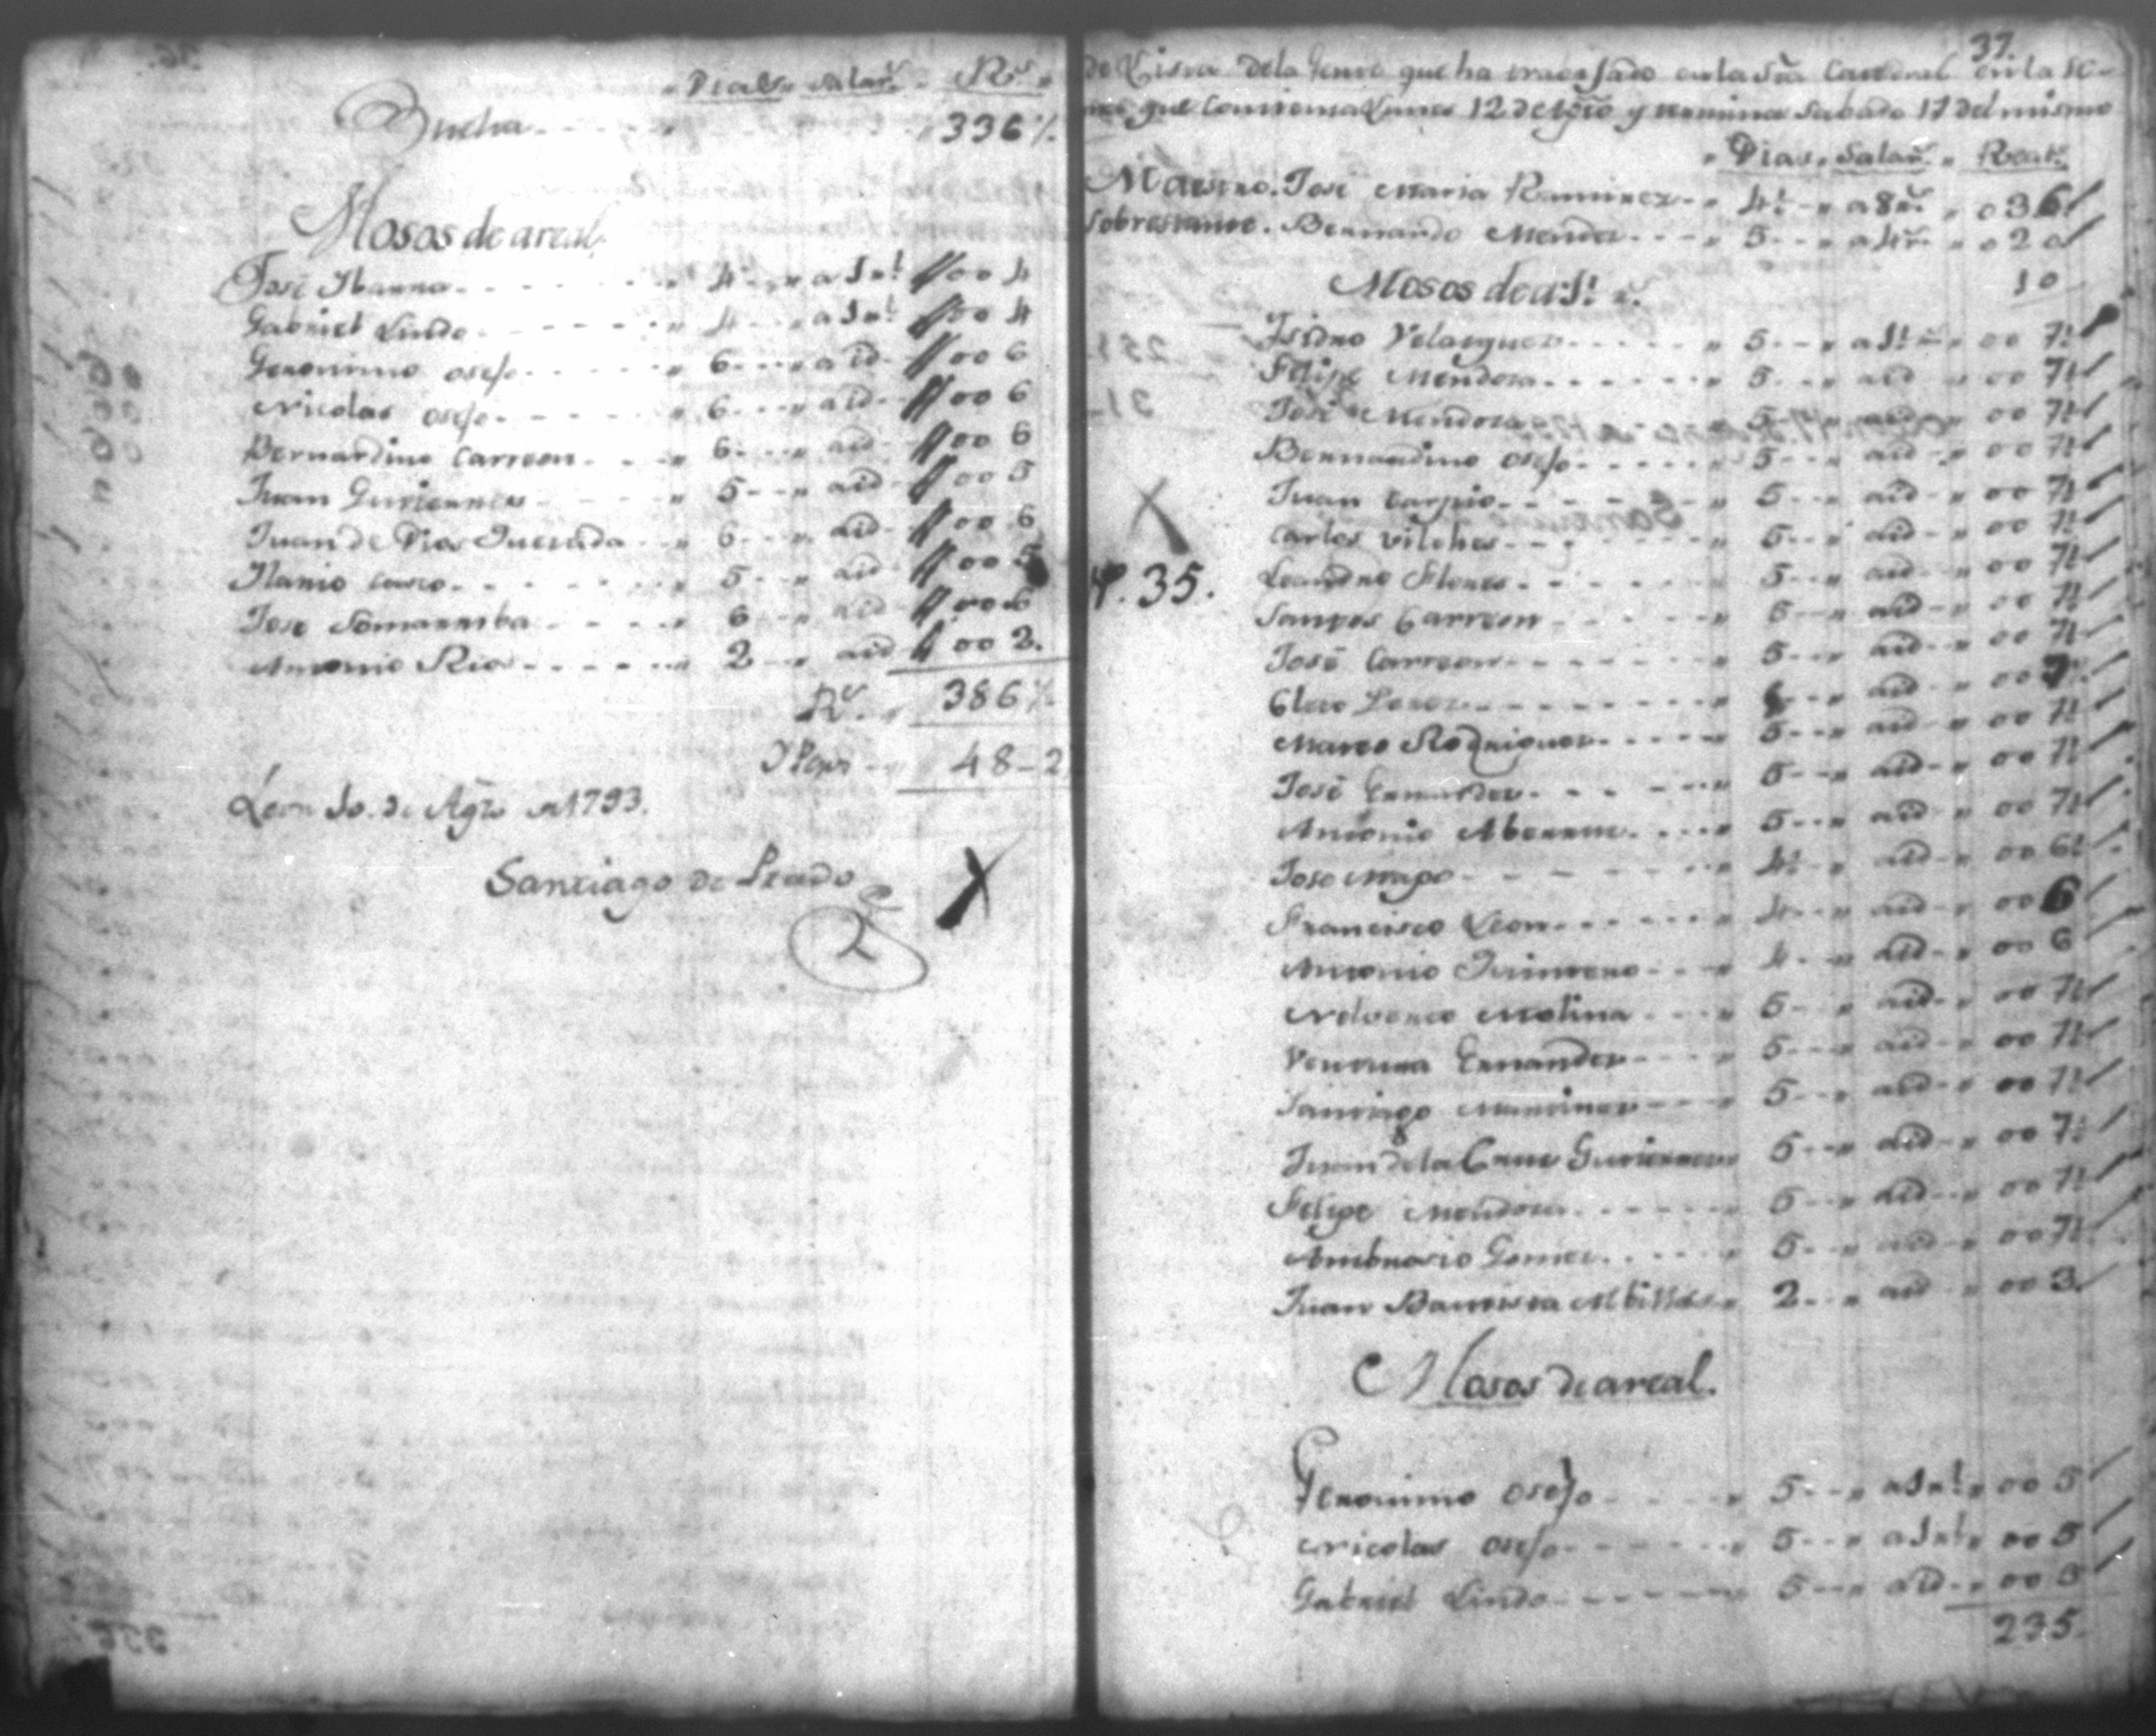 Dias. Salar.s Rs.
Buelta 336½
Mosos de a real
José Ibarra 4 a 1 rl 004
Gabriel Lindo 4 a 1 rl 004
Geronimo osejo 6 a id. 006
Nicolas osejo 6 a id. 006
Bernardino Carreon 6 a id 006
Juan Gutierres 5 a id 005
Juan de Dios Quesada 6 a id 006
Ilario Castro 5 a id 005
Jose Somarriba 6 a id 006
Antonio Rios 2 a id 002.
Rs. 386½
48-2
Leon 10. de Agto de 1793.
Santiago de Prado
2
37.
de Lista dela Jente que ha travajado en la Sta Catedral en la se
mna que Comiensa Lunes 12 de Agto y termina Sabado 17 del mismo
Dias. Salar.s Reals.
Maestro. José Maria Ramires 4½ a 8 rs. 036
Sobrestante. Bernardo Mendes 5 a 4 rs. 020
Mosos de a 1½ r. 10
Isidro Velasques 5 a 1½ r 007½
Felipe Mendosa 5 a id 007½
José Mendosa 5 a id 007½
Bernardino osejo 5 a id 007½
Juan Carpio 5 a id 007½
Carlos Vilches 5 a id 007½
N. 35.
Leandro Flores 5 a id 007½
Santos Carreon 5 a id 007½
José Carreon 5 a id 007½
a id 007½
Marco Rodrigues 5 a id 007½
José Ernandes 5 a id 007½
Antonio 5 a id 007½
Jose 4½ a id 006½
Francisco Leon 4 a id 006
Antonio 4 a id 006
Molina 5 a id 007½
Ventura Ernandes 5 a id 007½
Santiago Martines 5 a id 007½
Juan de la Crus Gutierres 5 a id 007½
Felipe Mendosa 5 a id 007½
Ambrosio Gomes 5 a id 007½
Juan Bautista 2 a id 003
Mosos de a real.
Geronimo osejo 5 a 1 rl 005
Nicolas osejo 5 a 1 rl 005
Gabriel Lindo 5 a id 005
235.